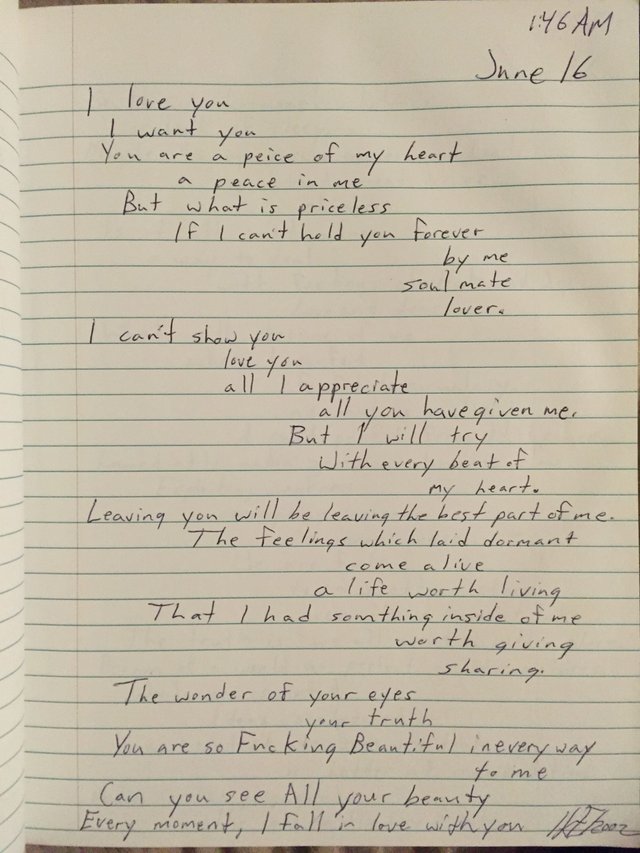 1:46 AM
June 16
I love you
I want you
You are a peice of my heart
a peace in me
But what is priceless
If I can't hold you forever
by me
soul mate
lover.
I can't show you
love you
all I appreciate
all you have given me.
But I will try
With every beat of
my heart.
Leaving you will be leaving the best part of me.
The feelings which laid dormant
come alive
a life worth living
That I had somthing inside of me
worth giving
sharing.
The wonder of your eyes
your truth
You are so Fucking Beautiful in every way
to me
Can you see All your beauty
Every moment, I fall in love with you